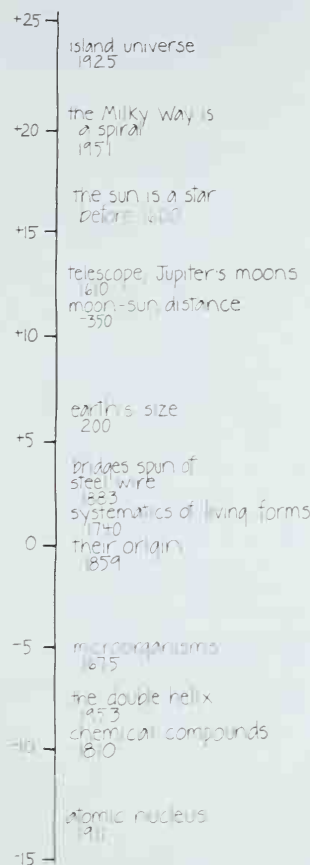 +25
island universe
1925
the Milky Way is
+20
a spiral
1951
the sun is a star
before 1600
+15
telescope, Jupiter's moons
1610
moon-sun distance
-350
+10
earth's size
200
+5
bridges spun of
steel wire
1883
systematics of living forms
1740
0
their origin
1859
-5
microorganisms
1675
the double helix
1953
chemical compounds
-10
1810
atomic nucleus
1911
-15